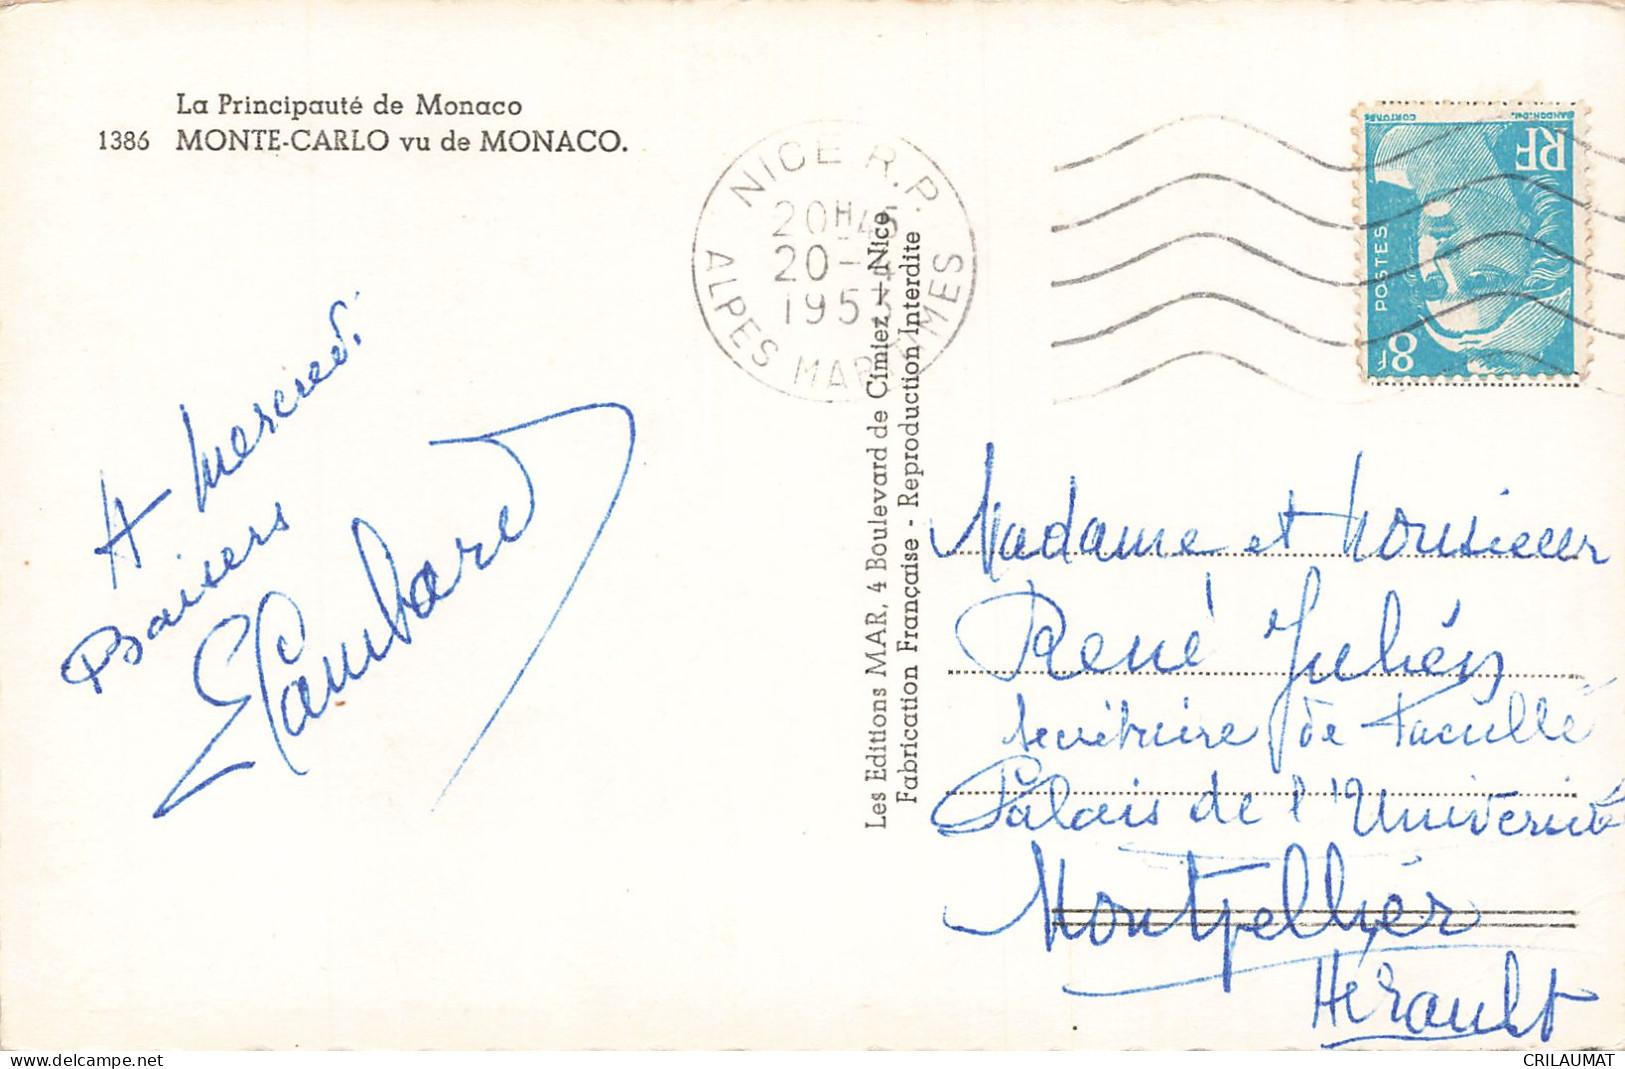 La Principauté de Monaco
1386 MONTE-CARLO vu de MONACO.
A Mercredi.
Baisers
NICE R.P.
20H45
20-4
1953
ALPES MARITIMES
Les Editions MAR, 4 Boulevard de Cimiez - Nice
Fabrication Française - Reproduction Interdite
CORTOT
GANDON-Del.
RF
POSTES
8f
Madame et Monsieur
René Julien
Secrétaire de Faculté
Palais de l'Université
Montpellier
Hérault
www.delcampe.net
CRILAUMAT